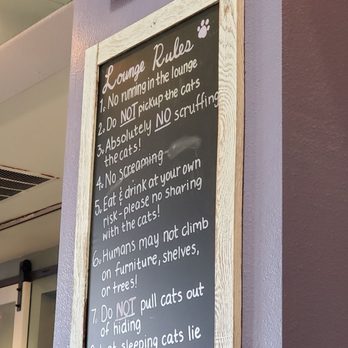 Lounge Rules
1. No running in the lounge
2. Do NOT pickup the cats
3. Absolutely NO scruffing
the cats!
4. No screaming
5. Eat & drink at your own
risk - please no sharing
with the cats!
6. Humans may not climb
on furniture, shelves,
or trees!
7. Do NOT pull cats out
of hiding
sleeping cats lie